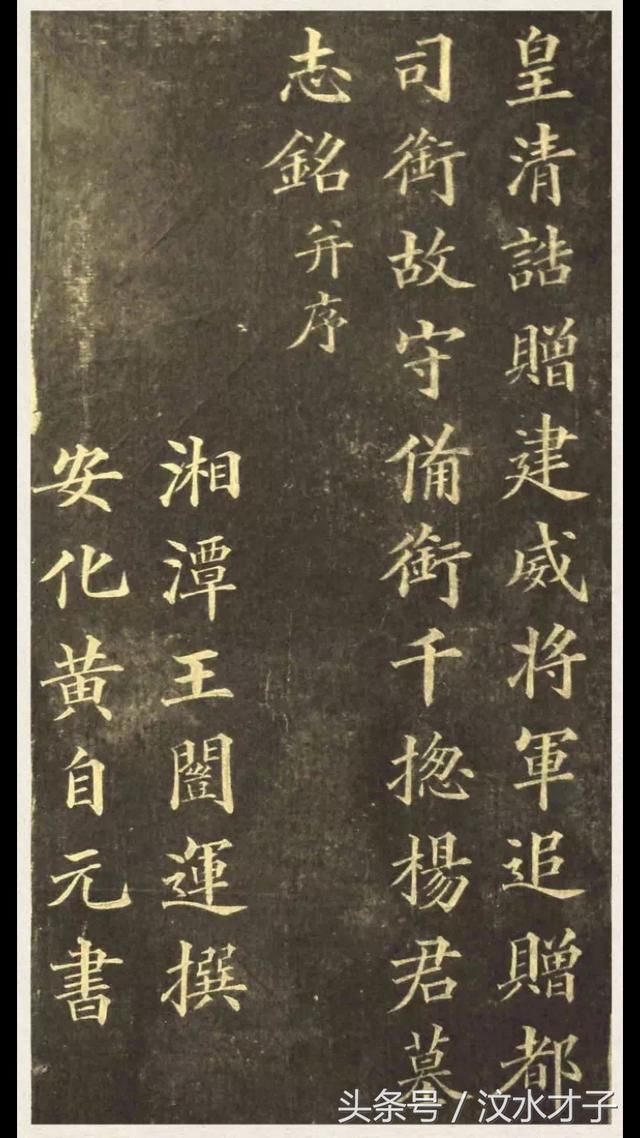 皇清誥贈建威將軍追贈都
司銜故守備銜千揔楊君墓
志銘并序
湘潭王闓運撰
安化黃自元書
头条号 / 汶水才子